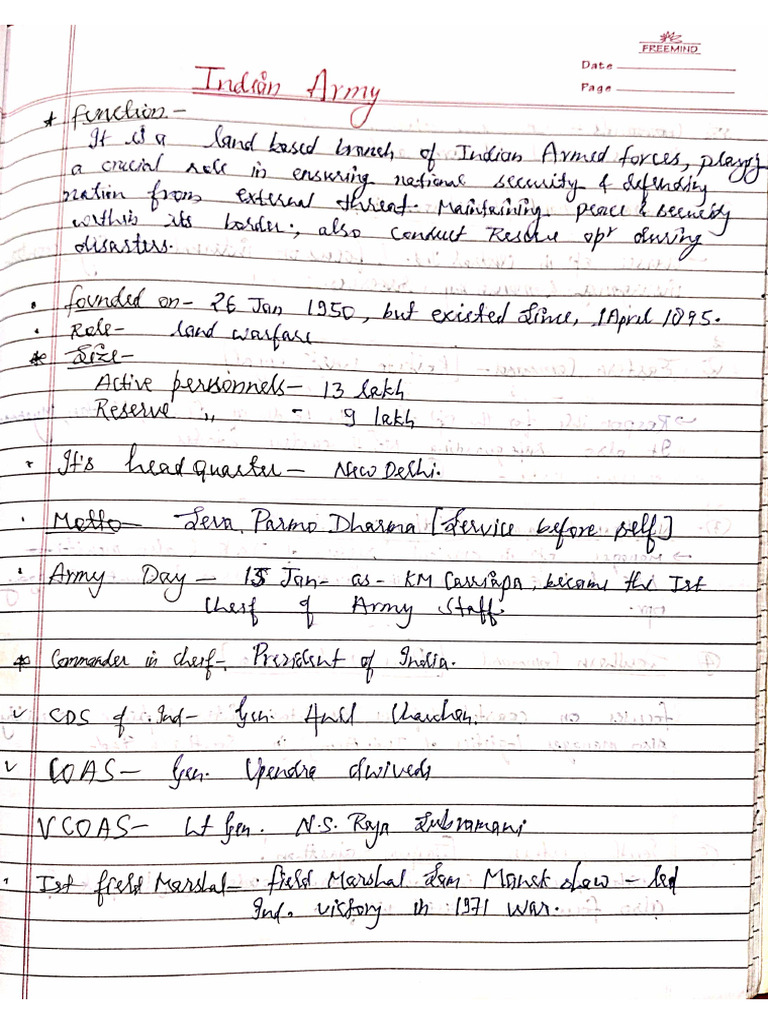 FREEMIND
Date
Page
Indian Army
* function -
It is a land based branch of Indian Armed forces, playing
a crucial role in ensuring national security & defending
nation from external threat. Maintaining peace & security
within its border, also conduct Rescue opr during
disasters.
• founded on - 26 Jan 1950, but existed since, 1 April 1895.
• Role - land warfare
* Size -
Active personnels - 13 lakh
Reserve " - 9 lakh
• It's head quarter - New Delhi.
• Motto - Seva Parmo Dharma [Service before self]
• Army Day - 15 Jan - as - KM Carriapa, became the Ist
Chief of Army Staff.
* Commander in chief - President of India.
✓ CDS of Ind - Gen. Anil Chauhan.
✓ COAS - Gen. Upendra dwivedi
VCOAS - Lt Gen. N.S. Raja Subramani
• Ist field Marshal - field Marshal Sam Manek shaw - led
Ind. victory in 1971 war.